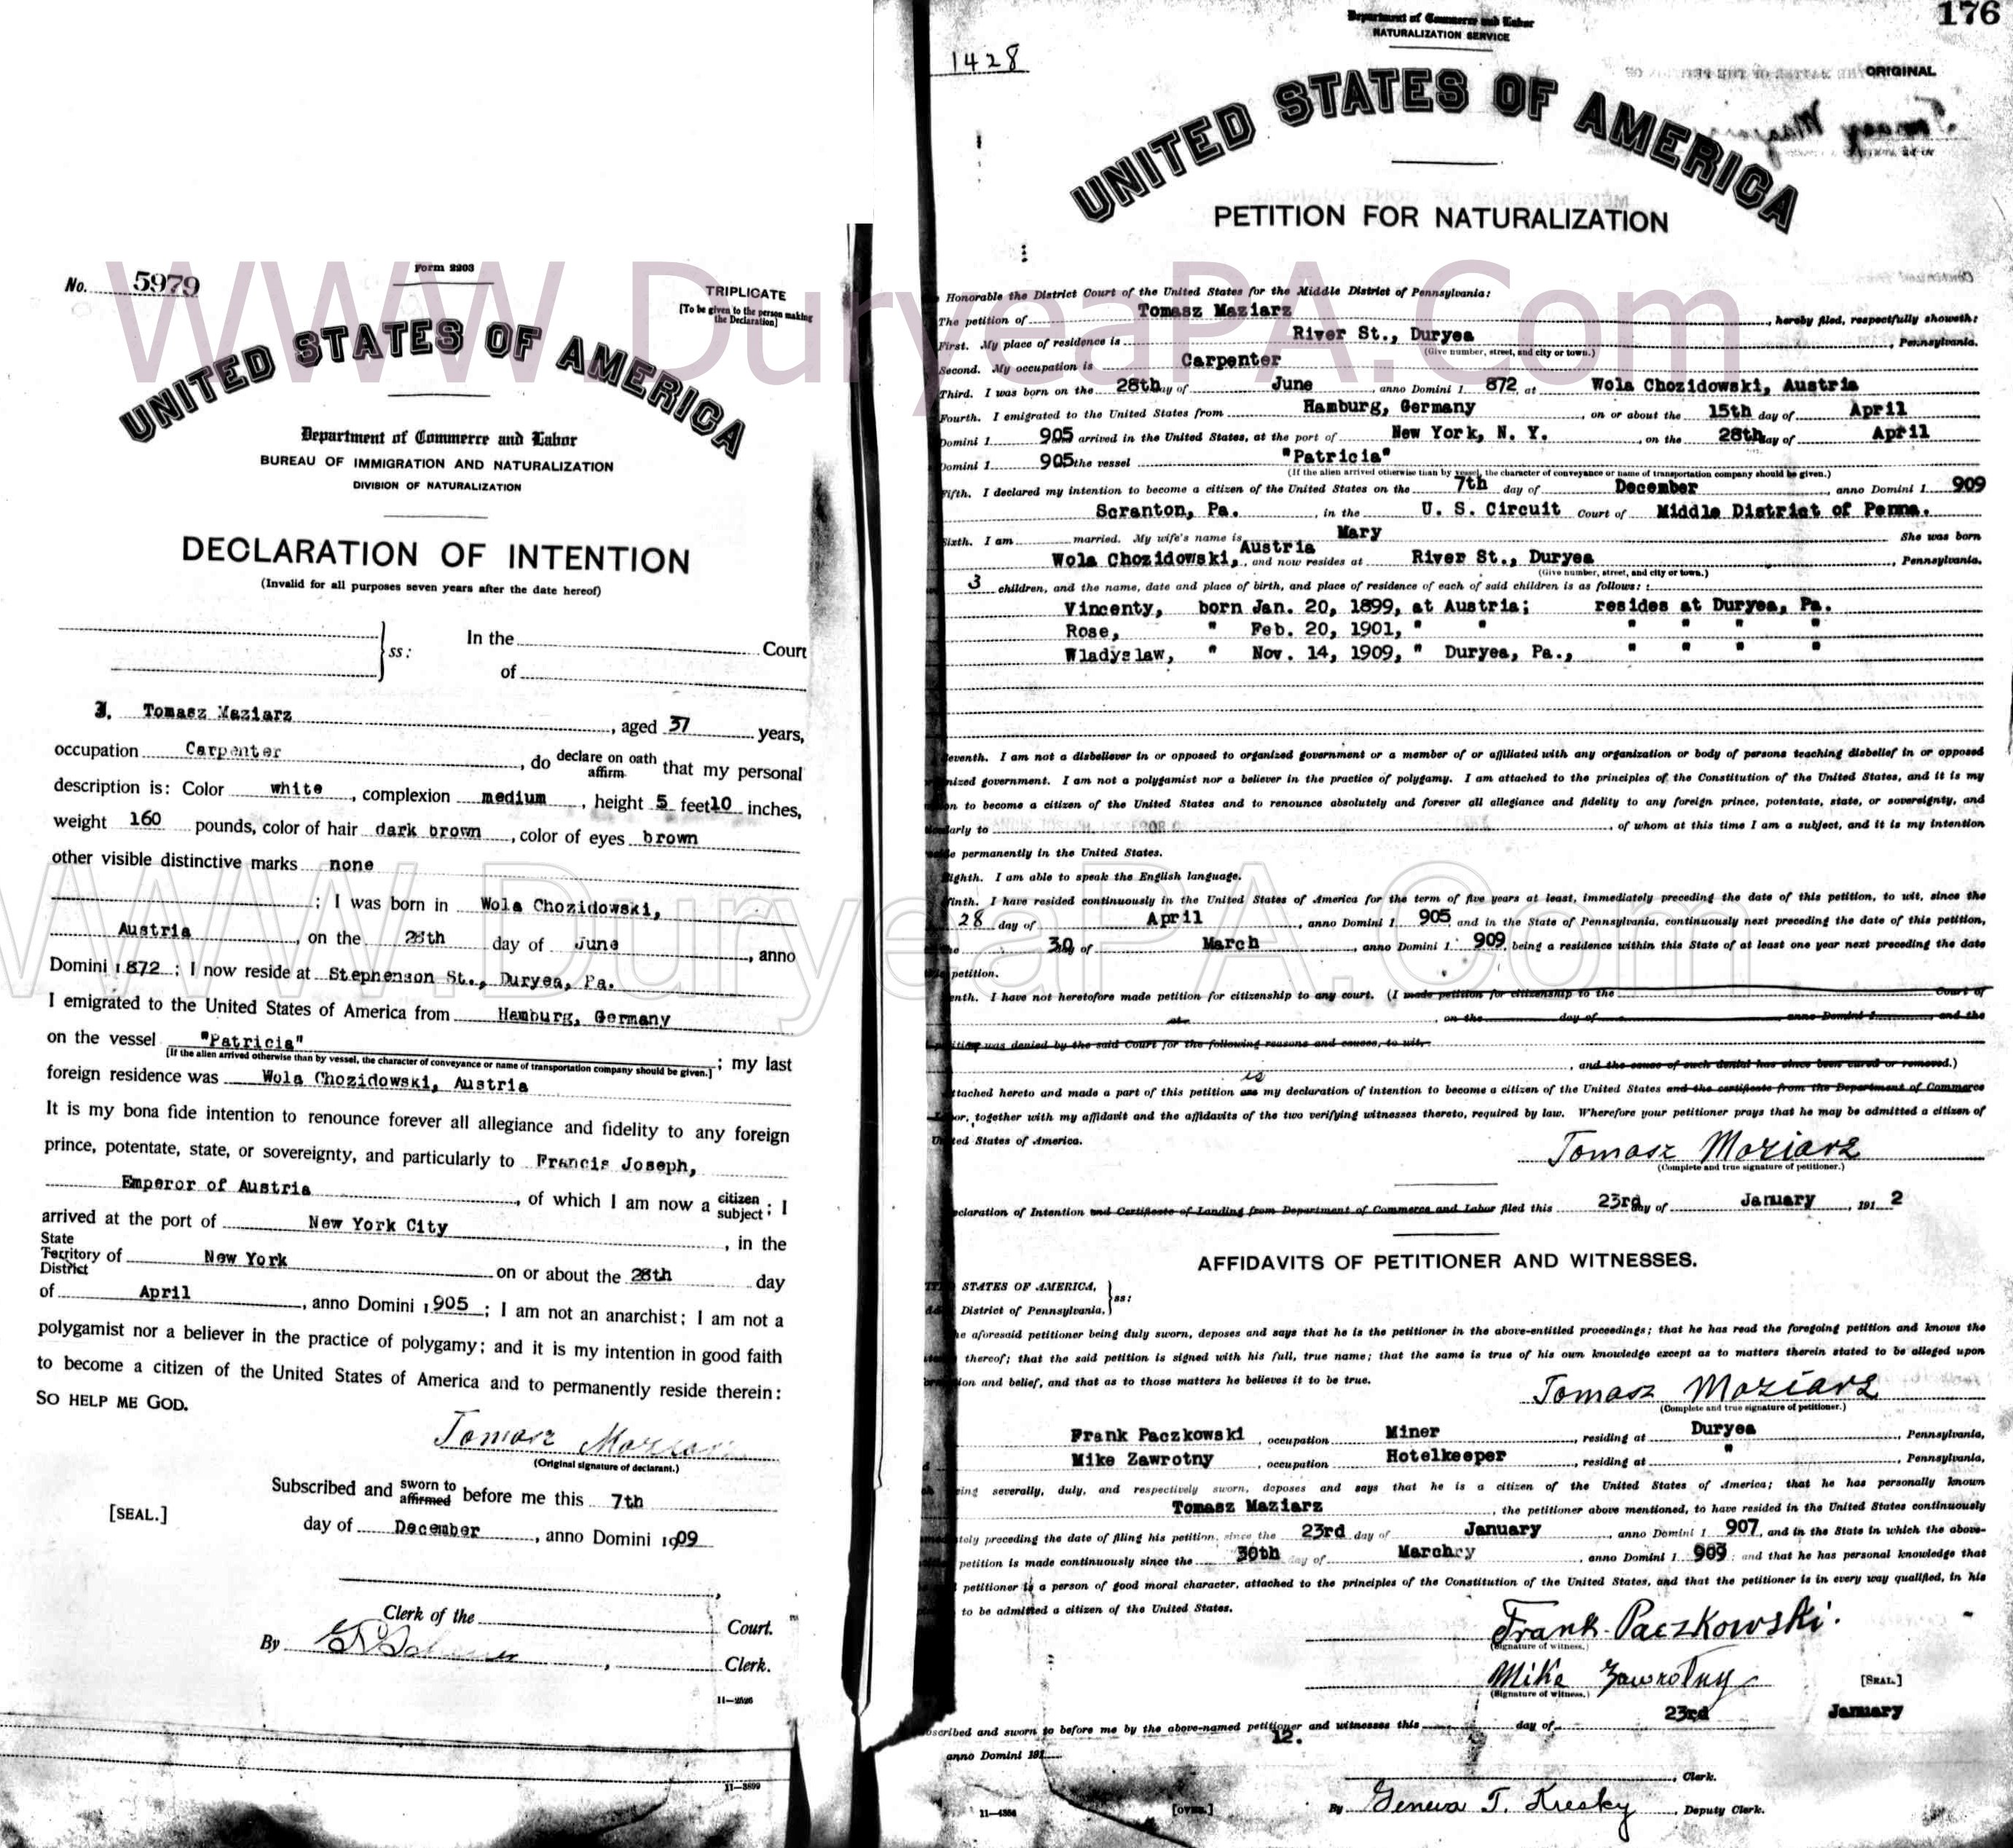 No. 5979
Form 2203
TRIPLICATE
[To be given to the person making
the Declaration]
UNITED STATES OF AMERICA
Department of Commerce and Labor
BUREAU OF IMMIGRATION AND NATURALIZATION
DIVISION OF NATURALIZATION
DECLARATION OF INTENTION
(Invalid for all purposes seven years after the date hereof)
ss: In the Court
of
I, Tomasz Maziarz, aged 37 years,
occupation Carpenter, do declare on oath affirm that my personal
description is: Color white, complexion medium, height 5 feet 10 inches,
weight 160 pounds, color of hair dark brown, color of eyes brown
other visible distinctive marks none
; I was born in Wola Chozidowski,
Austria, on the 28th day of June, anno
Domini 1872; I now reside at Stephenson St., Duryea, Pa.
I emigrated to the United States of America from Hamburg, Germany
on the vessel "Patricia"; my last
(If the alien arrived otherwise than by vessel, the character of conveyance or name of transportation company should be given.)
foreign residence was Wola Chozidowski, Austria
It is my bona fide intention to renounce forever all allegiance and fidelity to any foreign
prince, potentate, state, or sovereignty, and particularly to Francis Joseph,
Emperor of Austria, of which I am now a citizen subject; I
arrived at the port of New York City, in the
State Territory District of New York on or about the 28th day
of April, anno Domini 1905; I am not an anarchist; I am not a
polygamist nor a believer in the practice of polygamy; and it is my intention in good faith
to become a citizen of the United States of America and to permanently reside therein:
SO HELP ME GOD.
Tomasz Maziarz
(Original signature of declarant.)
Subscribed and sworn to affirmed before me this 7th
[SEAL.]
day of December, anno Domini 1909
Clerk of the Court.
By Clerk.
11-3899
176
Department of Commerce and Labor
NATURALIZATION SERVICE
1428
ORIGINAL
UNITED STATES OF AMERICA
PETITION FOR NATURALIZATION
Honorable the District Court of the United States for the Middle District of Pennsylvania:
The petition of Tomasz Maziarz, hereby filed, respectfully showeth:
First. My place of residence is River St., Duryea, Pennsylvania.
(Give number, street, and city or town.)
Second. My occupation is Carpenter
Third. I was born on the 28th day of June, anno Domini 1 872, at Wola Chozidowski, Austria
Fourth. I emigrated to the United States from Hamburg, Germany, on or about the 15th day of April
Domini 1 905 arrived in the United States, at the port of New York, N. Y., on the 28th day of April
Domini 1 905 the vessel "Patricia"
(If the alien arrived otherwise than by vessel, the character of conveyance or name of transportation company should be given.)
Fifth. I declared my intention to become a citizen of the United States on the 7th day of December, anno Domini 1 909
Scranton, Pa., in the U. S. Circuit Court of Middle District of Penna.
Sixth. I am married. My wife's name is Mary She was born
Wola Chozidowski, Austria, and now resides at River St., Duryea, Pennsylvania.
(Give number, street, and city or town.)
3 children, and the name, date and place of birth, and place of residence of each of said children is as follows:
Vincenty, born Jan. 20, 1899, at Austria; resides at Duryea, Pa.
Rose, " Feb. 20, 1901, " " " " " "
Wladyslaw, " Nov. 14, 1909, " Duryea, Pa., " " " "
eventh. I am not a disbeliever in or opposed to organized government or a member of or affiliated with any organization or body of persons teaching disbelief in or opposed
nized government. I am not a polygamist nor a believer in the practice of polygamy. I am attached to the principles of the Constitution of the United States, and it is my
on to become a citizen of the United States and to renounce absolutely and forever all allegiance and fidelity to any foreign prince, potentate, state, or sovereignty, and
arly to, of whom at this time I am a subject, and it is my intention
permanently in the United States.
ighth. I am able to speak the English language.
inth. I have resided continuously in the United States of America for the term of five years at least, immediately preceding the date of this petition, to wit, since the
28 day of April, anno Domini 1 905 and in the State of Pennsylvania, continuously next preceding the date of this petition,
30 day of March, anno Domini 1 909, being a residence within this State of at least one year next preceding the date
petition.
enth. I have not heretofore made petition for citizenship to any court. (I made petition for citizenship to the Court of
at, on the day of anno Domini 1 and the
petition was denied by the said Court for the following reasons and causes, to wit,
, and the cause of such denial has since been cured or removed.)
is
ttached hereto and made a part of this petition are my declaration of intention to become a citizen of the United States and the certificate from the Department of Commerce
or, together with my affidavit and the affidavits of the two verifying witnesses thereto, required by law. Wherefore your petitioner prays that he may be admitted a citizen of
United States of America.
Tomasz Maziarz
(Complete and true signature of petitioner.)
claration of Intention and Certificate of Landing from Department of Commerce and Labor filed this 23rd day of January, 191 2
AFFIDAVITS OF PETITIONER AND WITNESSES.
STATES OF AMERICA,
District of Pennsylvania, ss:
he aforesaid petitioner being duly sworn, deposes and says that he is the petitioner in the above-entitled proceedings; that he has read the foregoing petition and knows the
thereof; that the said petition is signed with his full, true name; that the same is true of his own knowledge except as to matters therein stated to be alleged upon
ion and belief, and that as to those matters he believes it to be true.
Tomasz Maziarz
(Complete and true signature of petitioner.)
Frank Paczkowski, occupation Miner, residing at Duryea, Pennsylvania,
Mike Zawrotny, occupation Hotelkeeper, residing at ", Pennsylvania,
eing severally, duly, and respectively sworn, deposes and says that he is a citizen of the United States of America; that he has personally known
Tomasz Maziarz, the petitioner above mentioned, to have resided in the United States continuously
tely preceding the date of filing his petition, since the 23rd day of January, anno Domini 1 907, and in the State in which the above-
petition is made continuously since the 30th day of March, anno Domini 1 909; and that he has personal knowledge that
petitioner is a person of good moral character, attached to the principles of the Constitution of the United States, and that the petitioner is in every way qualified, in his
to be admitted a citizen of the United States.
Frank Paczkowski
(Signature of witness.)
Mike Zawrotny
(Signature of witness.)
[SEAL.]
scribed and sworn to before me by the above-named petitioner and witnesses this day of 23rd January
anno Domini 191 12.
, Clerk.
11-4384
[OVER.]
By Geneva T. Kresky, Deputy Clerk.
WWW.DuryeaPA.Com
WWW.DuryeaPA.Com